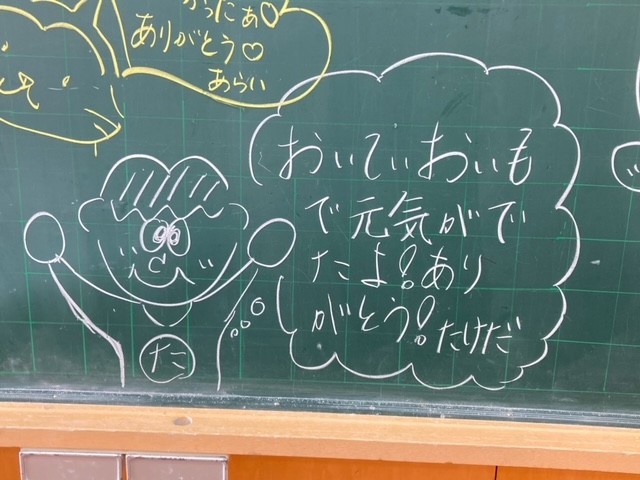 ありがとう♡
あらい
おいてぃおいも
で元気がで
たよ!あり
がとう!たけだ
た